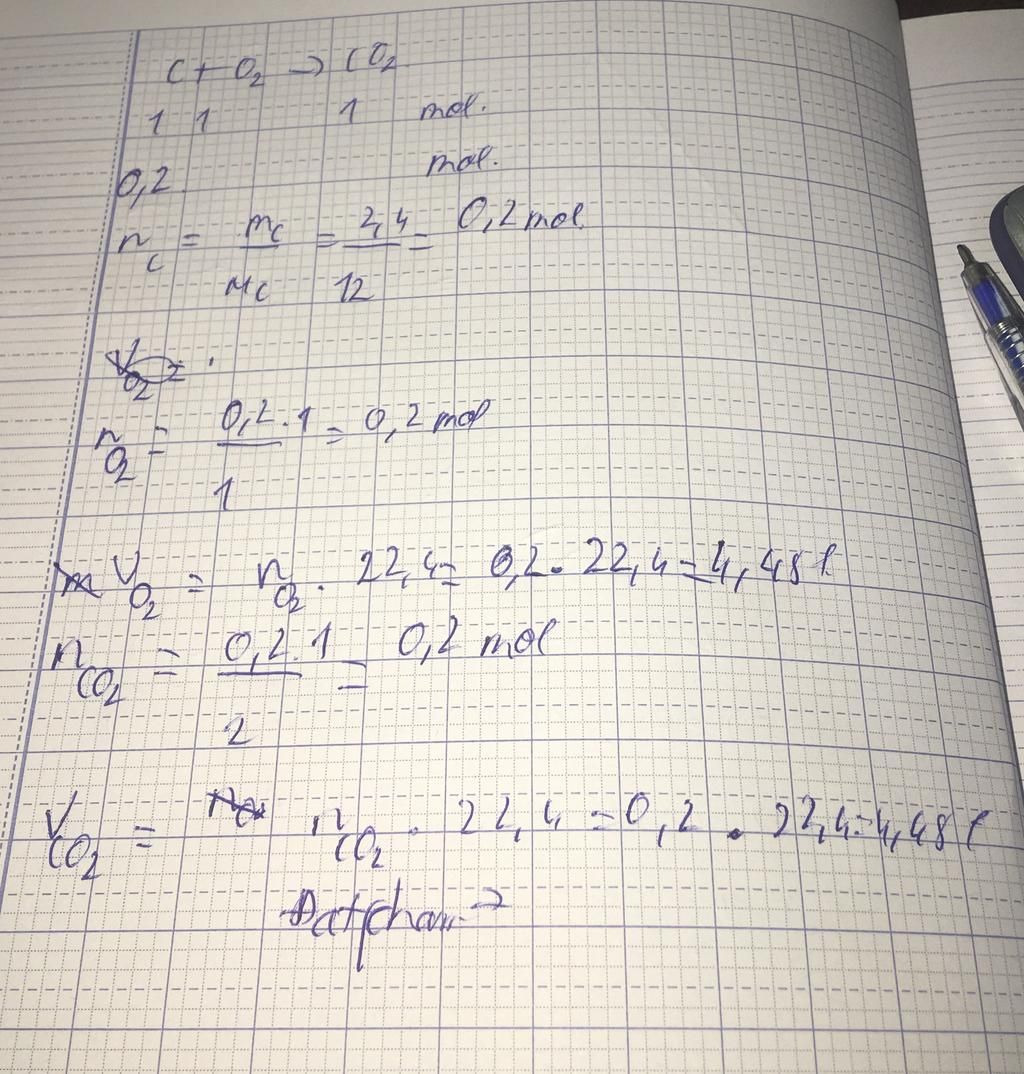 C + O₂ → CO₂
1 1 1 mol.
0,2 mol.
n_C = m_C / M_C = 2,4 / 12 = 0,2 mol
V_O₂ =
n_O₂ = 0,2 . 1 / 1 = 0,2 mol
V_O₂ = n_O₂ . 22,4 = 0,2 . 22,4 = 4,48 l
n_CO₂ = 0,2 . 1 / 2 = 0,2 mol
V_CO₂ = n_CO₂ . 22,4 = 0,2 . 22,4 = 4,48 l